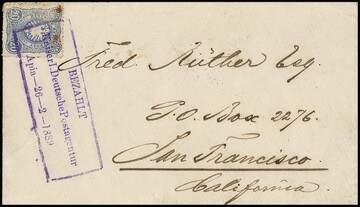 BEZAHLT
Kaiserl. Deutsche Postagentur
Apia—26-2—1889
Fred Rüther Esq.
P.O. Box 2276.
San Francisco.
California.